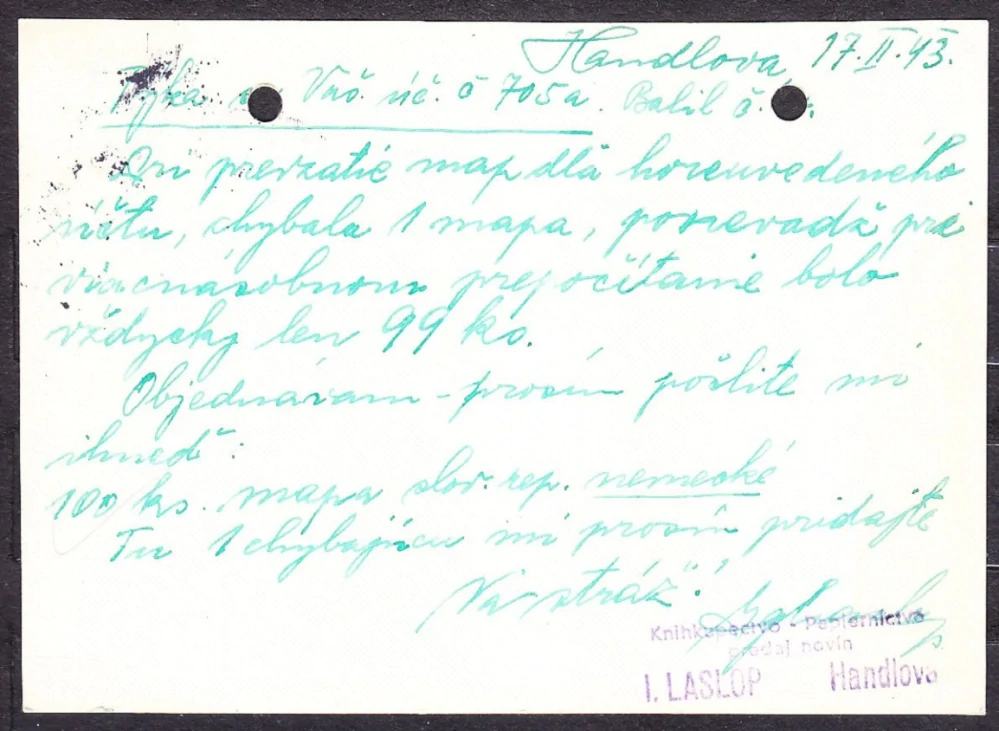 Handlova, 17.II.43.
Týka Váš. úč. č 705a. Balil č.
Pri prevzatié map dla horeuvedeného
účtu, chybala 1 mapa, ponevadž pri
viacnásobnom prepočítanie bolo
vždycky len 99 ks.
Objednávam - prosím pošlite mi
ihneď:
100 ks. mapa slov. rep. nemecké
Tu 1 chybajúcu mi prosím pridajte
Na stráž!
Kníhkupectvo - Papiernictvo
predaj novín
I. LASLOP Handlova